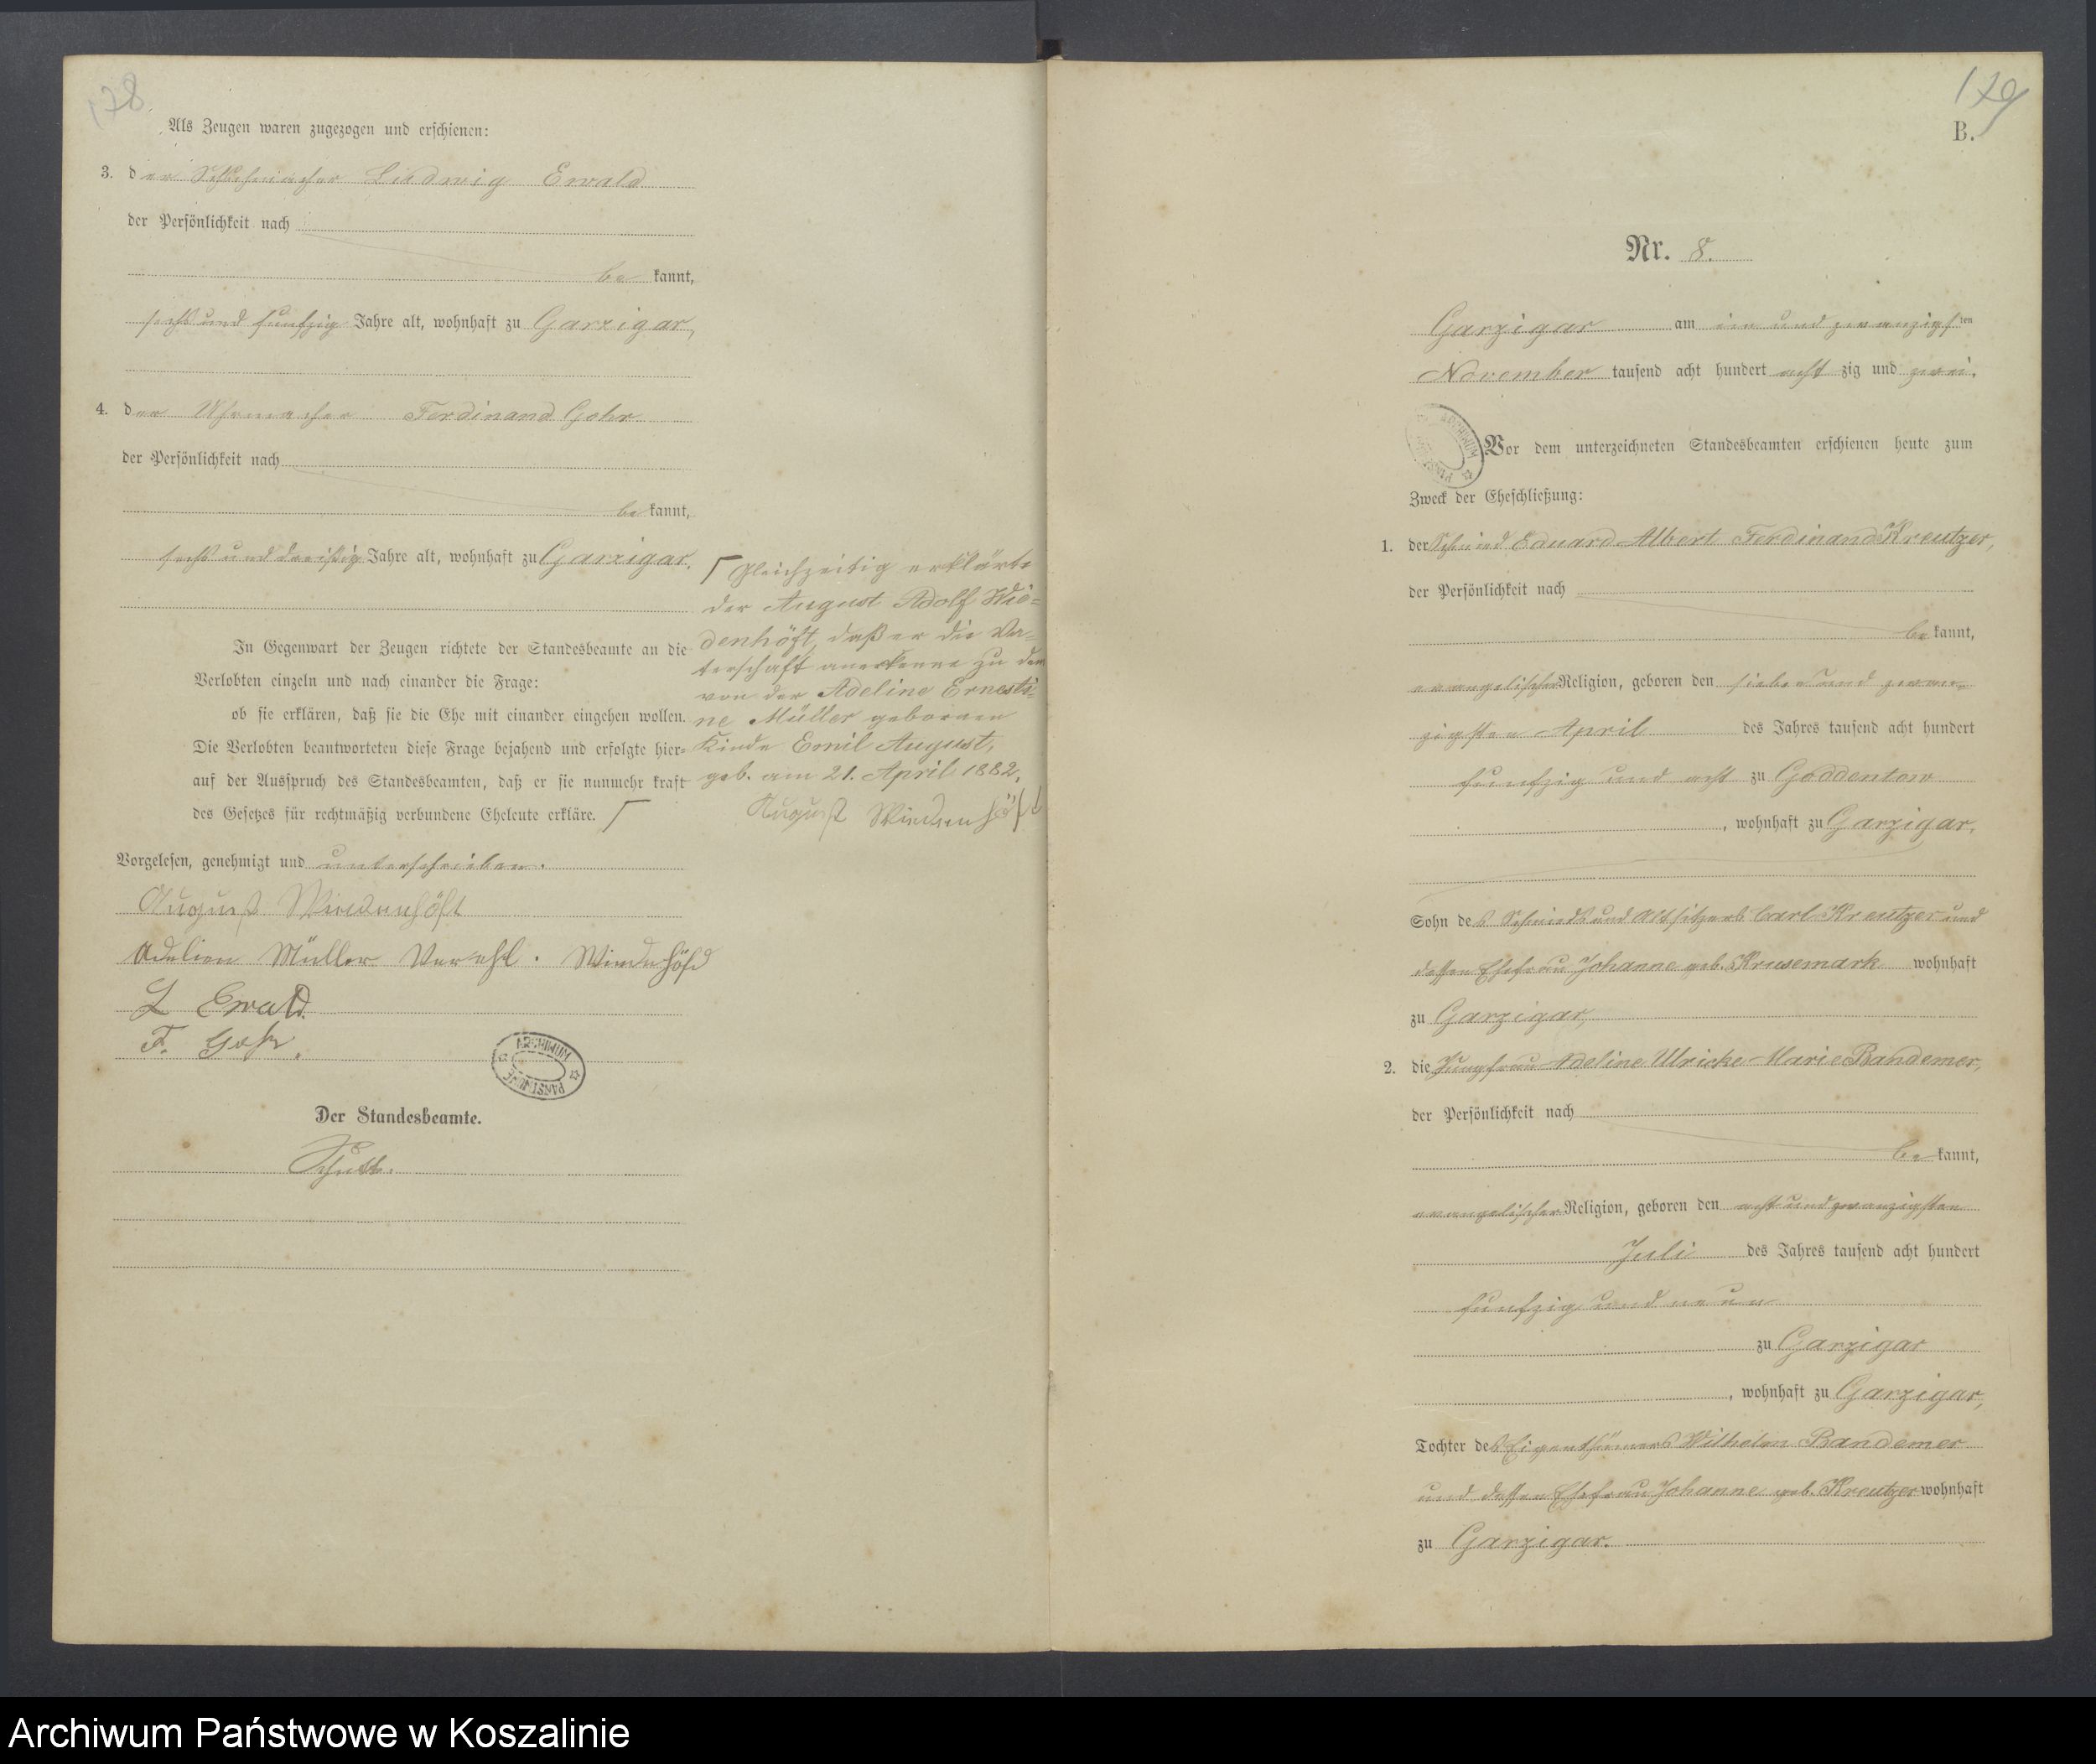 178
Als Zeugen waren zugezogen und erschienen:
3. der Schuhmacher Ludwig Ewald
der Persönlichkeit nach
be kannt,
sechs und funfzig Jahre alt, wohnhaft zu Garzigar,
4. der Uhrmacher Ferdinand Gohr
der Persönlichkeit nach
be kannt,
sechs und dreißig Jahre alt, wohnhaft zu Garzigar.
In Gegenwart der Zeugen richtete der Standesbeamte an die
Verlobten einzeln und nach einander die Frage:
ob sie erklären, daß sie die Ehe mit einander eingehen wollen.
Die Verlobten beantworteten diese Frage bejahend und erfolgte hier-
auf der Ausspruch des Standesbeamten, daß er sie nunmehr kraft
des Gesetzes für rechtmäßig verbundene Eheleute erkläre. Γ
Γ Gleichzeitig erklärte
der August Adolf Wie=
denhöft, daß er die Va=
terschaft anerkenne zu dem
von der Adeline Ernesti=
ne Müller geborenen
Kinde Emil August,
geb. am 21. April 1882.
August Wiedenhöft
Vorgelesen, genehmigt und unterschrieben.
August Wiedenhöft
Adeline Müller Verehl. Wiedenhöfd
L Ewald.
F. Gohr.
ARCHIWUM PAŃSTWOWE
Der Standesbeamte.
179
B.
Nr. 8.
Garzigar am ein und zwanzigsten
November tausend acht hundert acht zig und zwei.
ARCHIWUM
Vor dem unterzeichneten Standesbeamten erschienen heute zum
Zweck der Eheschließung:
1. der Schmied Eduard Albert Ferdinand Kreutzer,
der Persönlichkeit nach
be kannt,
evangelischer Religion, geboren den sieben und zwan=
zigsten April des Jahres tausend acht hundert
funfzig und acht zu Goddentow
, wohnhaft zu Garzigar,
Sohn des Schmieds und Altsitzers Carl Kreutzer und
dessen Ehefrau Johanne geb. Krusemark wohnhaft
zu Garzigar,
2. die Jungfrau Adeline Ulricke Marie Bandemer,
der Persönlichkeit nach
be kannt,
evangelischer Religion, geboren den acht und zwanzigsten
Juli des Jahres tausend acht hundert
funfzig und neun
zu Garzigar
, wohnhaft zu Garzigar,
Tochter des Eigenthümers Wilhelm Bandemer
und dessen Ehefrau Johanne geb. Kreutzer wohnhaft
zu Garzigar.
Archiwum Państwowe w Koszalinie